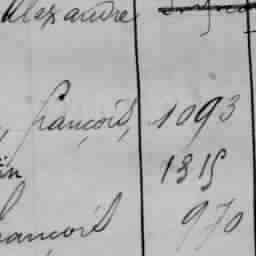 Alexandre
, françois, 1093
in 1315
françois 970